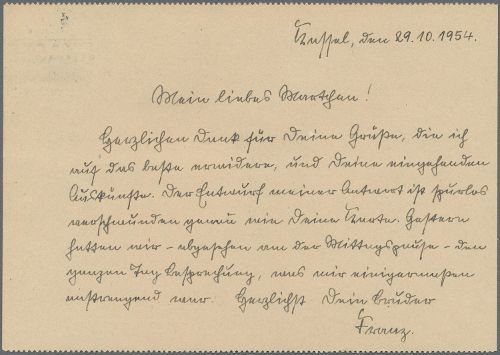 Kassel, den 29.10.1954.
Mein liebes Martchen!
Herzlichen Dank für Deine Grüße, die ich
auf das beste erwidere, und Deine eingehenden
Auskünfte. Der Entwurf meiner Antwort ist spurlos
verschwunden genau wie Deine Karte. Gestern
hatten wir – abgesehen von der Mittagspause – den
ganzen Tag Besprechung, was mir einigermaßen
anstrengend war. Herzlichst Dein Bruder
Franz.